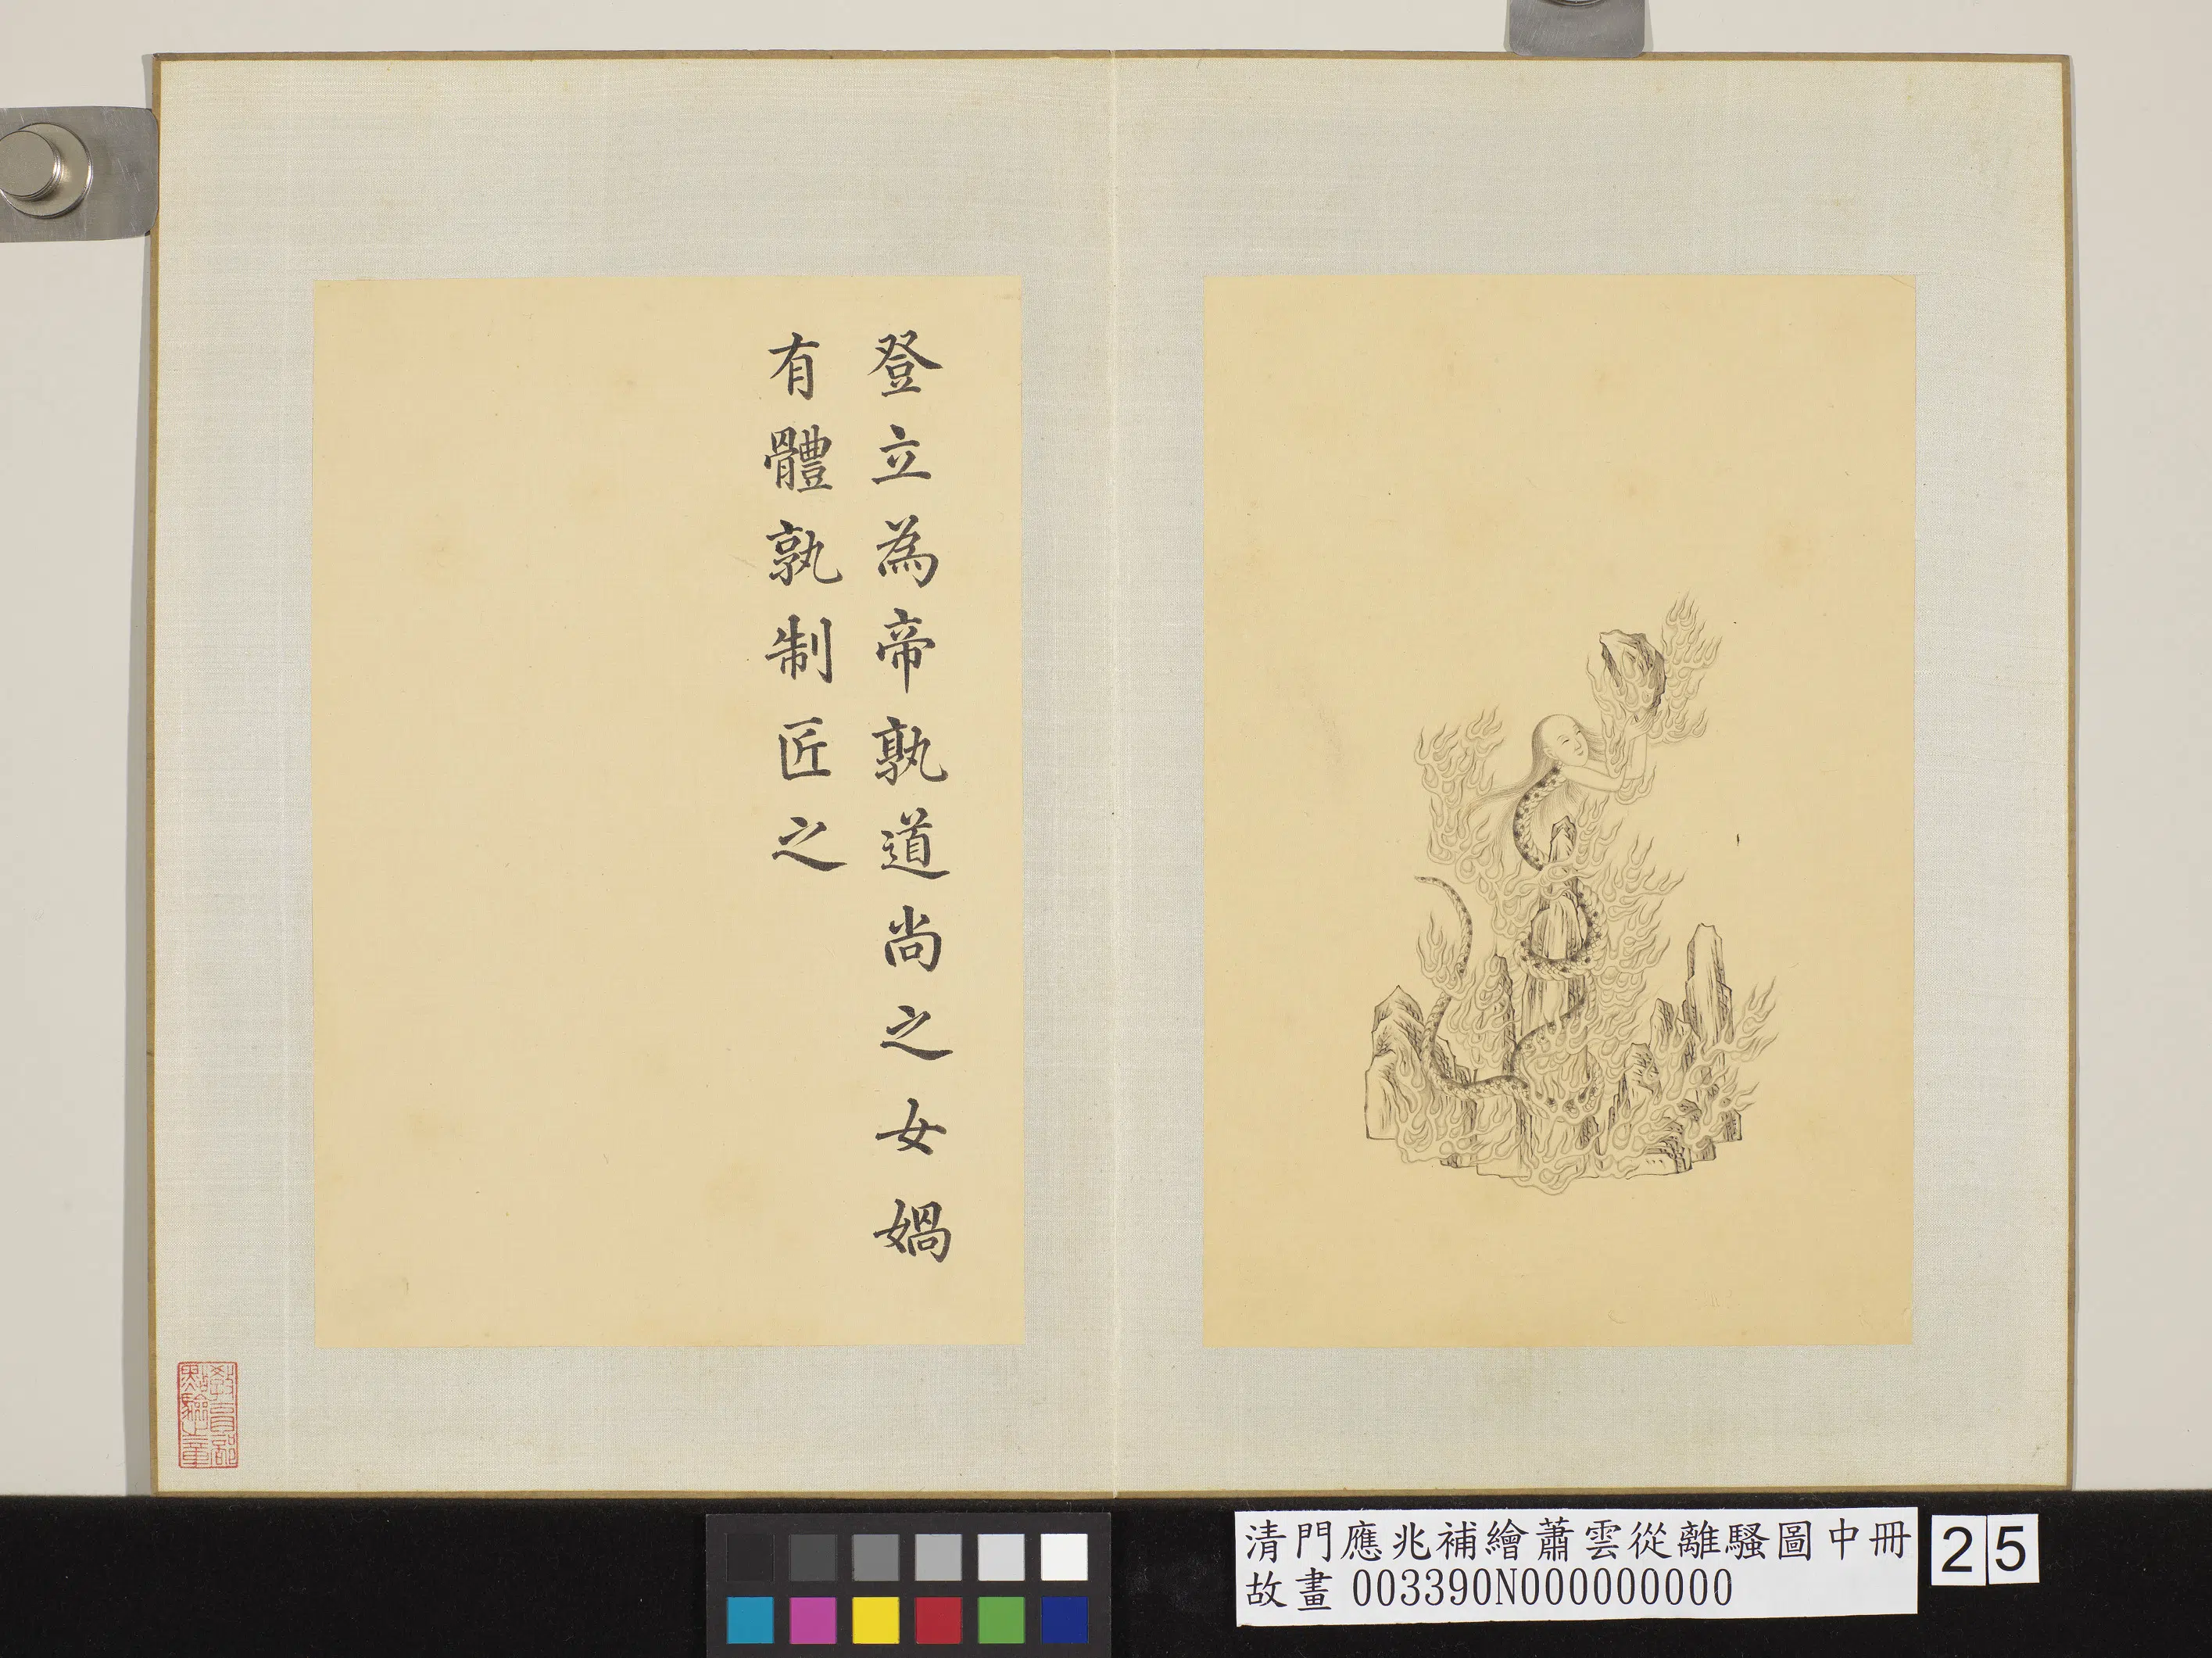 登立為帝孰道尚之女媧
有體孰制匠之
教育部
點驗之章
清門應兆補繪蕭雲從離騷圖中冊
故畫 003390N000000000
25